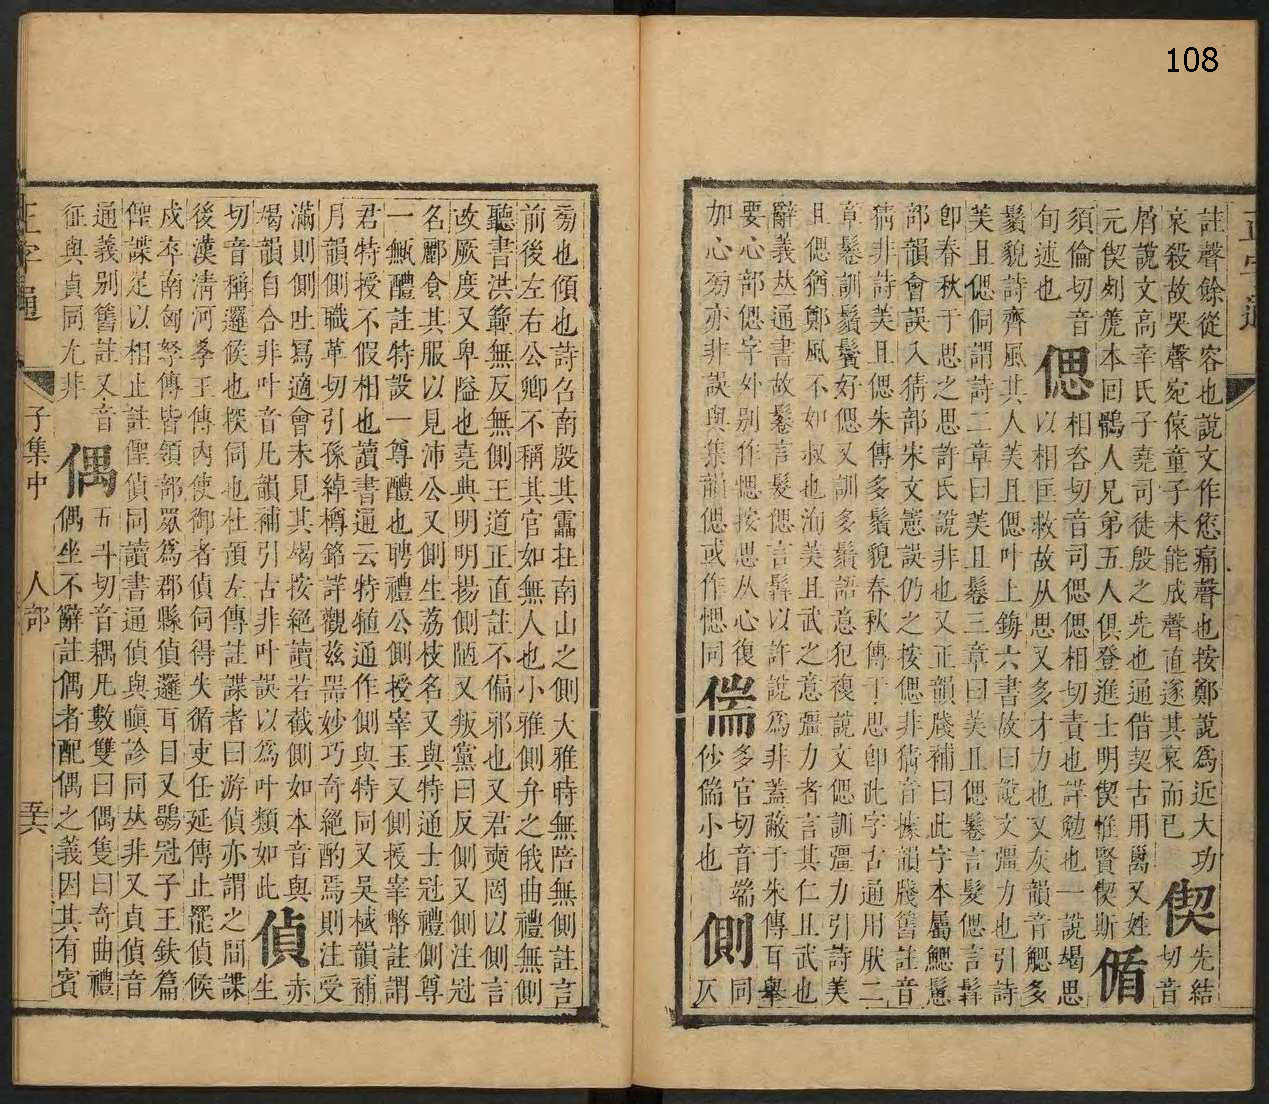 108
正字通
註聲餘從容也說文作㥋痛聲也按鄭說爲近大功
哀殺故哭聲宛偯童子未能成聲直遂其哀而已
偰
先結
切音
屑說文高辛氏子堯司徒殷之先也通借契古用卨又姓
元偰列篪本回鶻人兄弟五人俱登進士明偰惟賢偰斯
偱
須倫切音
旬述也
偲
相咨切音司偲偲相切責也詳勉也一說竭思
以相匡救故从思又多才力也又灰韻音鰓多
鬚貌詩齊風其人美且偲叶上鋂六書故曰說文彊力也引詩
美且偲侗謂詩二章曰美且鬈三章曰美且偲鬈言髮偲言髯
卽春秋于思之思許氏說非也又正韻牋補曰此字本屬鰓䰄
部韻會誤入猜部宋文憲誤仍之按偲非猜音據韻牋舊註音
猜非詩美且偲朱傳多鬚貌春秋傳于思卽此字古通用肰二
章鬈訓鬚鬢好偲又訓多鬚語意犯複說文偲訓彊力引詩美
且偲猶鄭風不如叔也洵美且武之意彊力者言其仁且武也
辭義𠀤通書故鬈言髮偲言髯以許說爲非蓋蔽于朱傳耳舉
要心部偲字外別作愢按思从心復
加心㫄亦非誤與集韻偲或作愢同
偳
多官切音耑同
㑳偳小也
側
仄
㫄也傾也詩召南殷其靁在南山之側大雅時無陪無側註言
前後左右公卿不稱其官如無人也小雅側弁之俄曲禮無側
聽書洪範無反無側王道正直註不偏邪也又君奭罔以側言
改厥度又卑隘也堯典明明揚側陋又叛黨曰反側又側注冠
名酈食其服以見沛公又側生荔枝名又與特通士冠禮側尊
一甒醴註特設一尊醴也聘禮公側授宰玉又側授宰幣註謂
君特授不假相也讀書通云特犆通作側與特同又吳棫韻補
月韻側職革切引孫綽樽銘詳觀茲器妙巧奇絕酌焉則注受
滿則側吐冩適會未見其竭按絕讀若截側如本音與
竭韻自合非叶音凡韻補引古非叶誤以爲叶類如此
偵
赤
生
切音稱邏候也探伺也杜預左傳註諜者曰游偵亦謂之閒諜
後漢淸河孝王傳內使御者偵伺得失循吏任延傳止罷偵候
戍卒南匈奴傳皆領部眾爲郡縣偵邏耳目又鶡冠子王鈇篇
偵諜足以相止註偵同讀書通偵與瞋診同𠀤非又貞偵音
通義別舊註又音
征與貞同尤非
偶
五斗切音耦凡數雙曰偶隻曰奇曲禮
偶坐不辭註偶者配偶之義因其有賓
正字通
子集中
人部